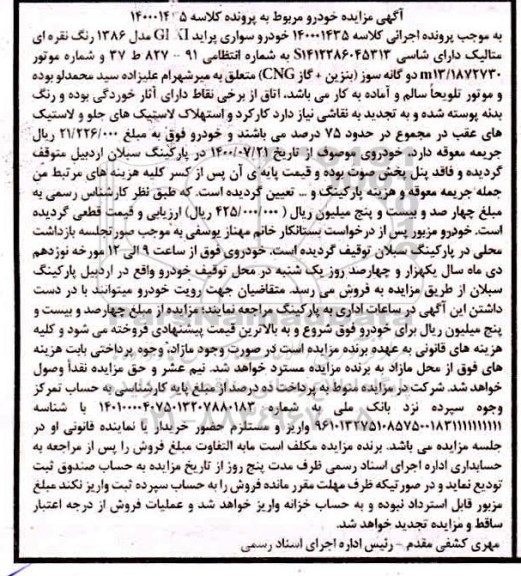 آگهی مزایده خودرو مربوط به پرونده کلاسه ۱۴۰۰۰۱۴۳۵
به موجب پرونده اجرائی کلاسه ۱۴۰۰۰۱۴۳۵ خودرو سواری پراید GLXI مدل ۱۳۸۶ رنگ نقره ای
متالیک دارای شاسی S۱۴۱۲۲۸۶۰۴۵۳۱۳ به شماره انتظامی ۹۱ - ۸۲۷ ط ۳۷ و شماره موتور
m۱۳/۱۸۷۲۷۳۰ دو گانه سوز (بنزین + گاز CNG) متعلق به میرشهرام علیزاده سید محمدلو بوده
و موتور تلویحاً سالم و آماده به کار می باشد، اتاق از برخی نقاط دارای آثار خوردگی بوده و رنگ
بدنه پوسته شده و به تجدید به نقاشی نیاز دارد کارکرد و استهلاک لاستیک های جلو و لاستیک
های عقب در مجموع در حدود ۷۵ درصد می باشند و خودرو فوق به مبلغ ۲۱/۲۲۶/۰۰۰ ریال
جریمه معوقه دارد. خودروی موصوف از تاریخ ۱۴۰۰/۰۷/۲۱ در پارکینگ سبلان اردبیل متوقف
گردیده و فاقد پنل پخش صوت بوده و قیمت پایه ی آن پس از کسر کلیه هزینه های مرتبط من
جمله جریمه معوقه و هزینه پارکینگ و ... تعیین گردیده است. که طبق نظر کارشناس رسمی به
مبلغ چهار صد و بیست و پنج میلیون ریال ( ۴۲۵/۰۰۰/۰۰۰ ریال) ارزیابی و قیمت قطعی گردیده
است. خودرو مزبور پس از درخواست بستانکار خانم مهناز یوسفی به موجب صورتجلسه بازداشت
محلی در پارکینگ سبلان توقیف گردیده است. خودروی فوق از ساعت ۹ الی ۱۲ مورخه نوزدهم
دی ماه سال یکهزار و چهارصد روز یک شنبه در محل توقیف خودرو واقع در اردبیل پارکینگ
سبلان از طریق مزایده به فروش می رسد. متقاضیان جهت رویت خودرو میتوانند با در دست
داشتن این آگهی در ساعات اداری به پارکینگ مراجعه نمایند؛ مزایده از مبلغ چهارصد و بیست و
پنج میلیون ریال برای خودرو فوق شروع و به بالاترین قیمت پیشنهادی فروخته می شود و کلیه
هزینه های قانونی به عهده برنده مزایده است در صورت وجود مازاد، وجوه پرداختی بابت هزینه
های فوق از محل مازاد به برنده مزایده مسترد خواهد شد. نیم عشر و حق مزایده نقداً وصول
خواهد شد. شرکت در مزایده منوط به پرداخت ده درصد از مبلغ پایه کارشناسی به حساب تمرکز
وجوه سپرده نزد بانک ملی به شماره ۱۴۰۱۰۰۰۴۰۷۵۰۱۳۲۰۷۸۸۰۱۸۲ با شناسه
۹۶۱۰۱۳۲۷۵۱۰۸۵۷۵۰۰۱۸۳۱۱۱۱۱۱۱۱۱۱ واریز و مستلزم حضور خریدار یا نماینده قانونی او در
جلسه مزایده می باشد. برنده مزایده مکلف است مابه التفاوت مبلغ فروش را پس از مراجعه به
حسابداری اداره اجرای اسناد رسمی ظرف مدت پنج روز از تاریخ مزایده به حساب صندوق ثبت
تودیع نماید و در صورتیکه ظرف مهلت مقرر مانده فروش را به حساب سپرده ثبت واریز نکند مبلغ
مزبور قابل استرداد نبوده و به حساب خزانه واریز خواهد شد و عملیات فروش از درجه اعتبار
ساقط و مزایده تجدید خواهد شد.
مهری کشفی مقدم - رئیس اداره اجرای اسناد رسمی